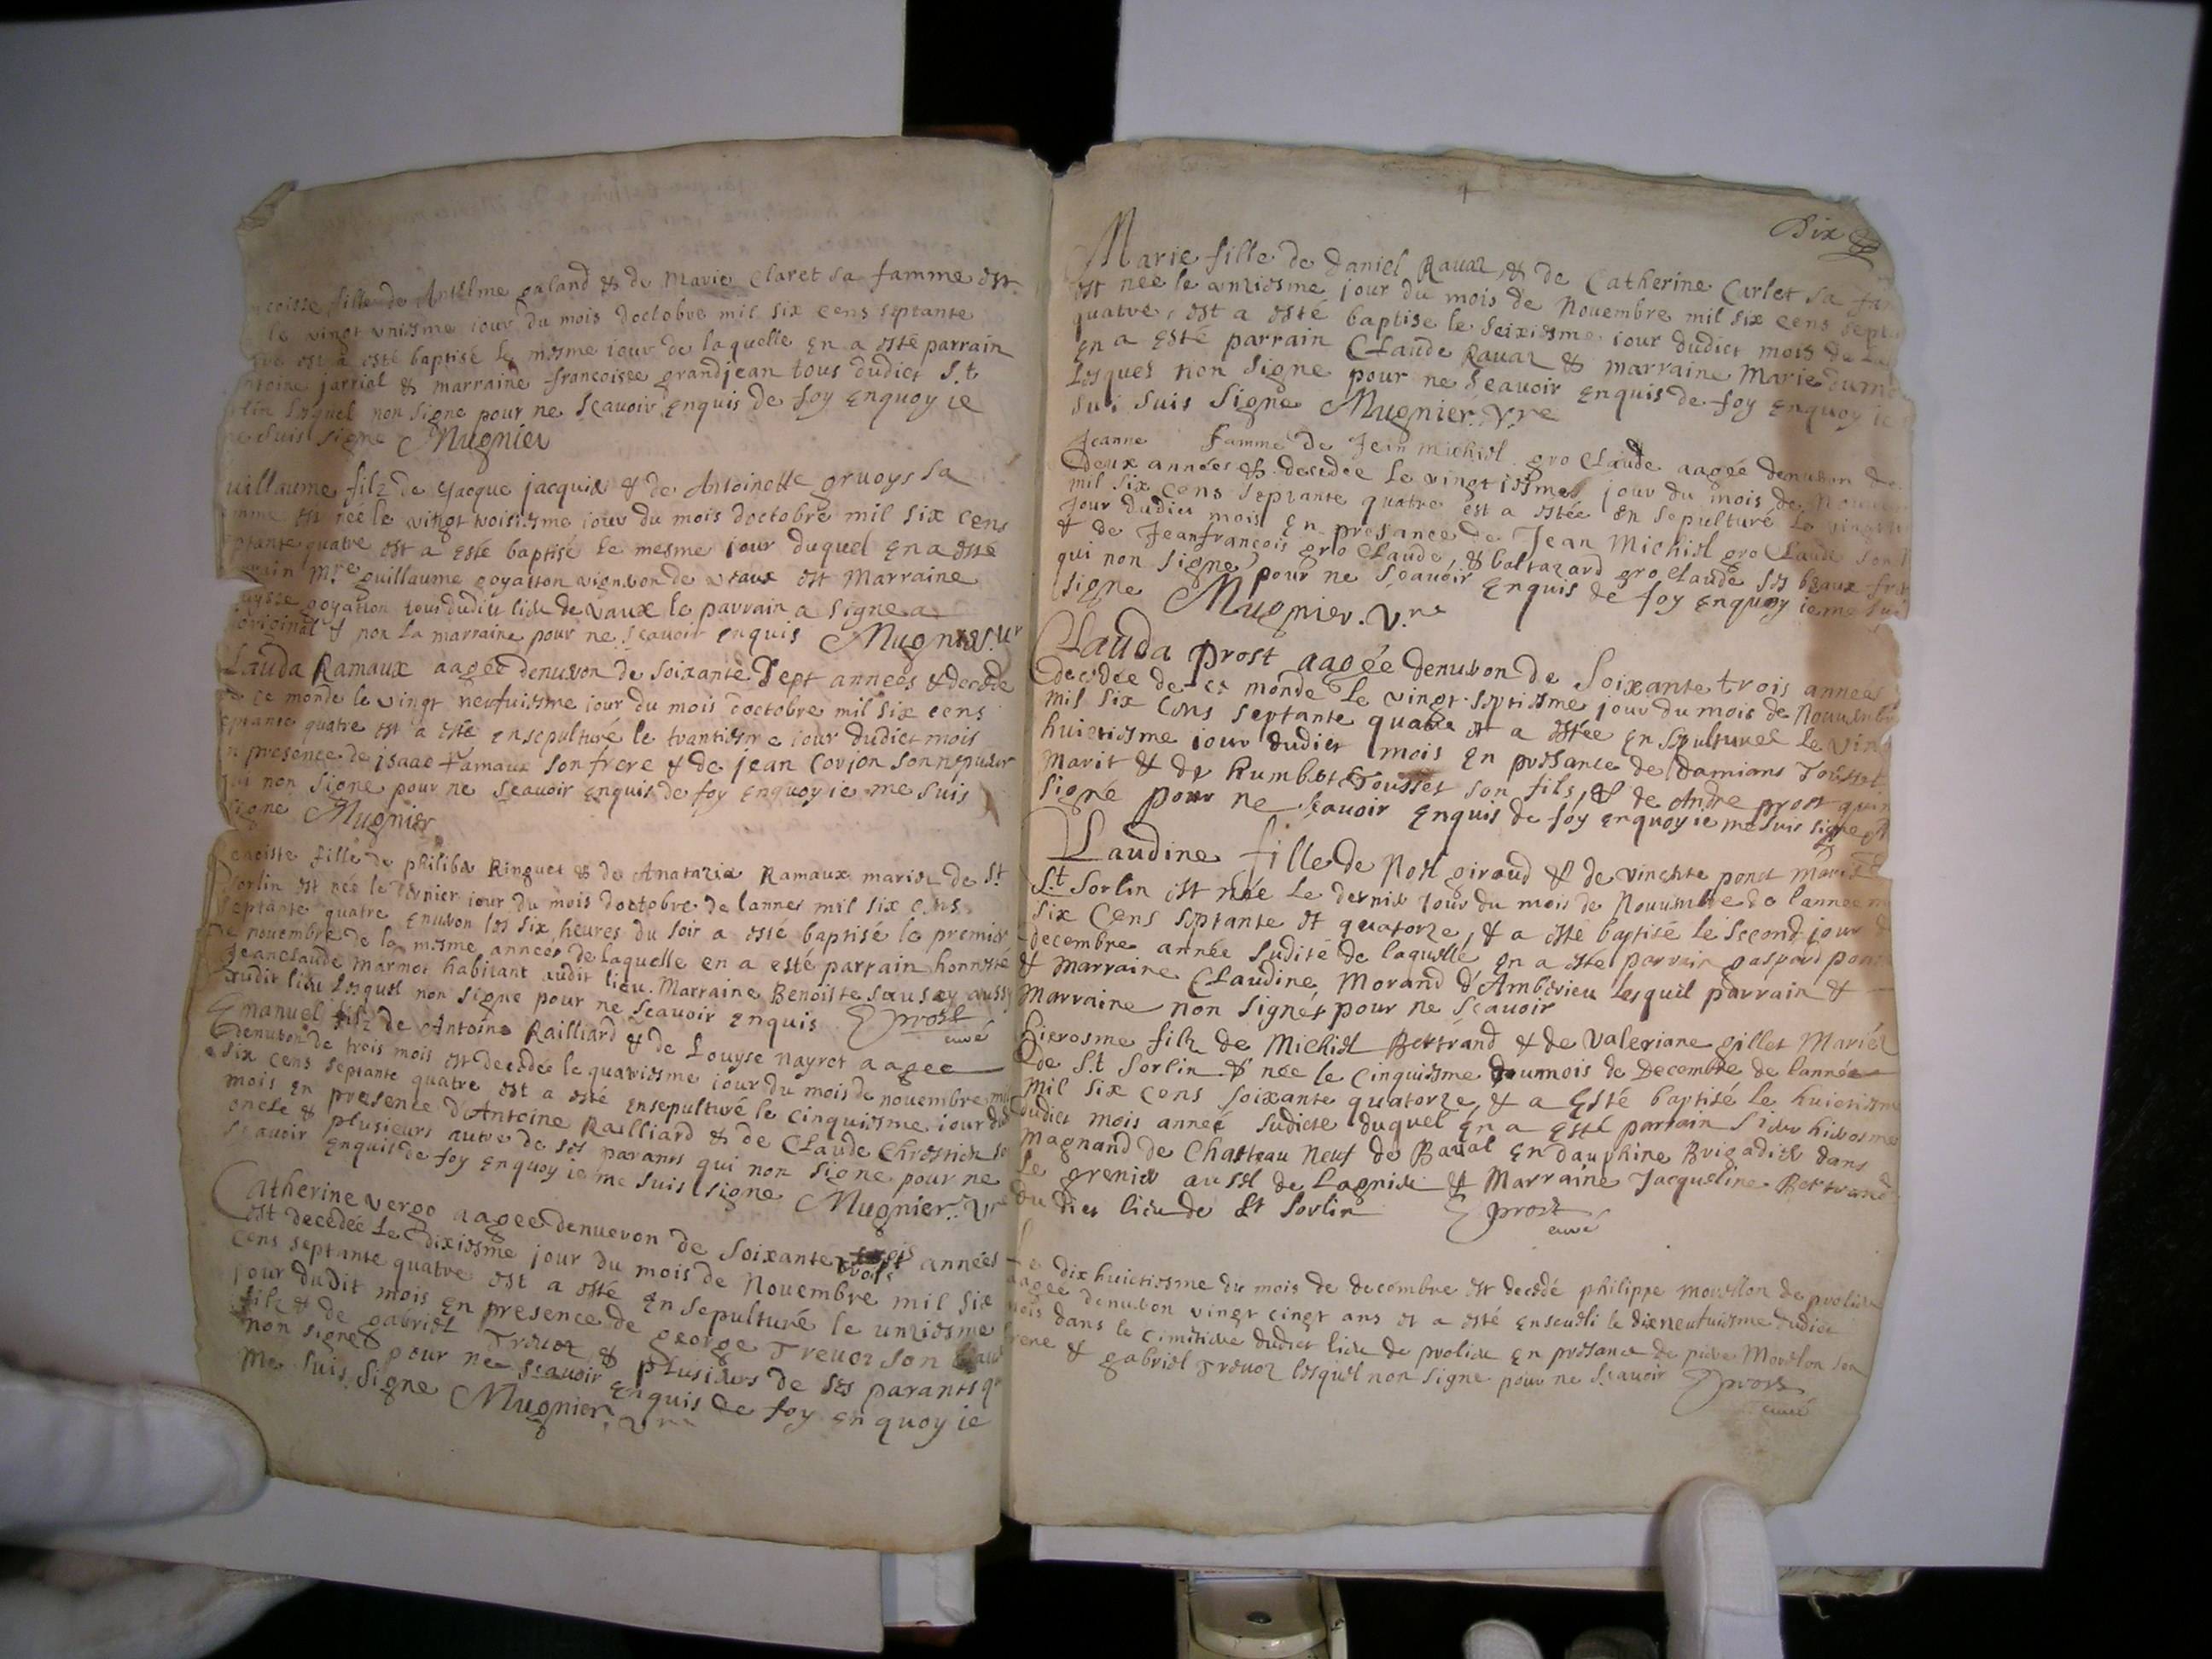 fille de Anselme galand & de Marie Claret sa famme est
le vingt uniesme iour du mois doctobre mil six cens septante
est a esté baptisé le mesme iour de laquelle en a esté parrain
jarriel & marraine francoisee grandjean tous dudict S.t
lesquel non signe pour ne scavoir enquis de foy enquoy ie
suis signe Mugnier
uillaume filz de Jacque jacquie & de Antoinette gruoys sa
est née le vingt troisiesme iour du mois doctobre mil six cens
quatre est a esté baptisé le mesme iour duquel en a esté
M.re guillaume goyatton vigneron de vaux est Marraine
goyatton tous dudict lieu de vaux le parrain a signe a
original & non la marraine pour ne scavoir enquis Mugnier
Lauda Ramaux aagée denviron de soixante sept années & decede
ce monde le vingt neufuiesme iour du mois doctobre mil six cens
quatre est a esté ensepulturé le trantiesme iour dudict mois
presence de isaac ramaux son frere & de jean Corjon son nepueur
non signe pour ne scavoir enquis de foy enquoy ie me suis
signe Mugnier
fille de philiba Ringuet & de Anatazia Ramaux mariez de S.t
sorlin est née le dernier iour du mois doctobre de lannee mil six cens
septante quatre enuiron les six heures du soir a esté baptisé le premier
de nouembre de la mesme année de laquelle en a esté parrain honneste
Jeanclaude Marmot habitant audit lieu. Marraine Benoiste aussy
dudit lieu lesquel non signe pour ne scavoir enquis prost
curé
Emanuel filz de Antoine Railliard & de Louyse nayret aagee
denviron de trois mois est decedée le quatriesme iour du mois de nouembre mil
six cens septante quatre est a esté ensepulturé le cinquiesme iour du
mois en presence d'Antoine Railliard & de Claude Chrestien so
oncle & plusieurs autre de ses parants qui non signe pour ne
scavoir enquis de foy enquoy ie me suis signe Mugnier. V.re
Catherine vergo aagee denueron de soixante trois années
est decedée le dixiesme jour du mois de Nouembre mil six
cens septante quatre est a esté ensepulturé le unziesme
jour dudit mois en presence de george Treuoz son
filz & de gabriel Treuoz & plusieurs de ses parants q
non signe pour ne scavoir enquis de foy en quoy ie
me suis signe Mugnier. V.re
Dix
Marie fille de Daniel Rauaz & de Catherine Curlet sa fa
est née le unziesme jour du mois de Nouembre mil six cens sept
quatre, est a esté baptise le seixiesme iour dudict mois de la
en a esté parrain Claude Rauaz & marraine Marie dumo
lesquel non signe pour ne scavoir enquis de foy enquoy ie
suis signe Mugnier. V.re
Jeanne famme de Jean michiel gro Claude aagée denviron de
deux années & decedee le vingtiesme jour du mois de Nouem
mil six cens septante quatre est a estée en sepulturé le vingt
jour dudict mois en presance de Jean Michiel gro Claude son
& de Jeanfrancois gro Claude, & baltazard gro claude ses beaux frer
qui non signe pour ne scavoir enquis de foy enquoy ie me suis
signe Mugnier. V.re
Clauda prost aagée denviron de Soixante trois années
decedée de ce monde le vingt septiesme jour du mois de Nouembre
mil six cens septante quatre est a estée en sepulturée le vin
huictiesme iour dudict mois en presance de Damians Tousset
marit & de humbert Tousset son fils, & de Andre prost qui n
signé pour ne scavoir enquis de foy enquoy ie me suis signe
Claudine fille de Noel giraud & de vincente ponct mariez
S.t Sorlin est née le dernier jour du mois de Nouembre de lannee m
six cens septante et quatorze, & a esté baptisé le second jour d
decembre année sudite de laquelle en a esté parrain gaspard ponc
& marraine Claudine Morand d'Amberieu lesquel parrain &
marraine non signés pour ne scavoir
hierosme filz de Michiel Bertrand & de Valeriane gillet Mariez
de S.t Sorlin & née le cinquiesme du mois de Decembre de lannée
mil six cens soixante quatorze, & a esté baptisé le huictiesme
dudict mois année sudicte duquel en a esté parrain Sieur hierosme
Magnand de Chasteau neuf de en dauphine Brigadier dans
le grenier au sel de Lagnieu & Marraine Jacqueline Bertrand
du dict lieu de St sorlin prost
curé
Le dixhuictiesme du mois de decembre est decedé philippe mouellon de prolieu
aagée denviron vingt cingt ans et a esté enseueli le dixneufuiesme dudict
mois dans le cimitiere dudict lieu de prolieu en presance de piere Mouellon son
frere & gabriel Treuoz lesquel non signe pour ne scavoir prost
curé